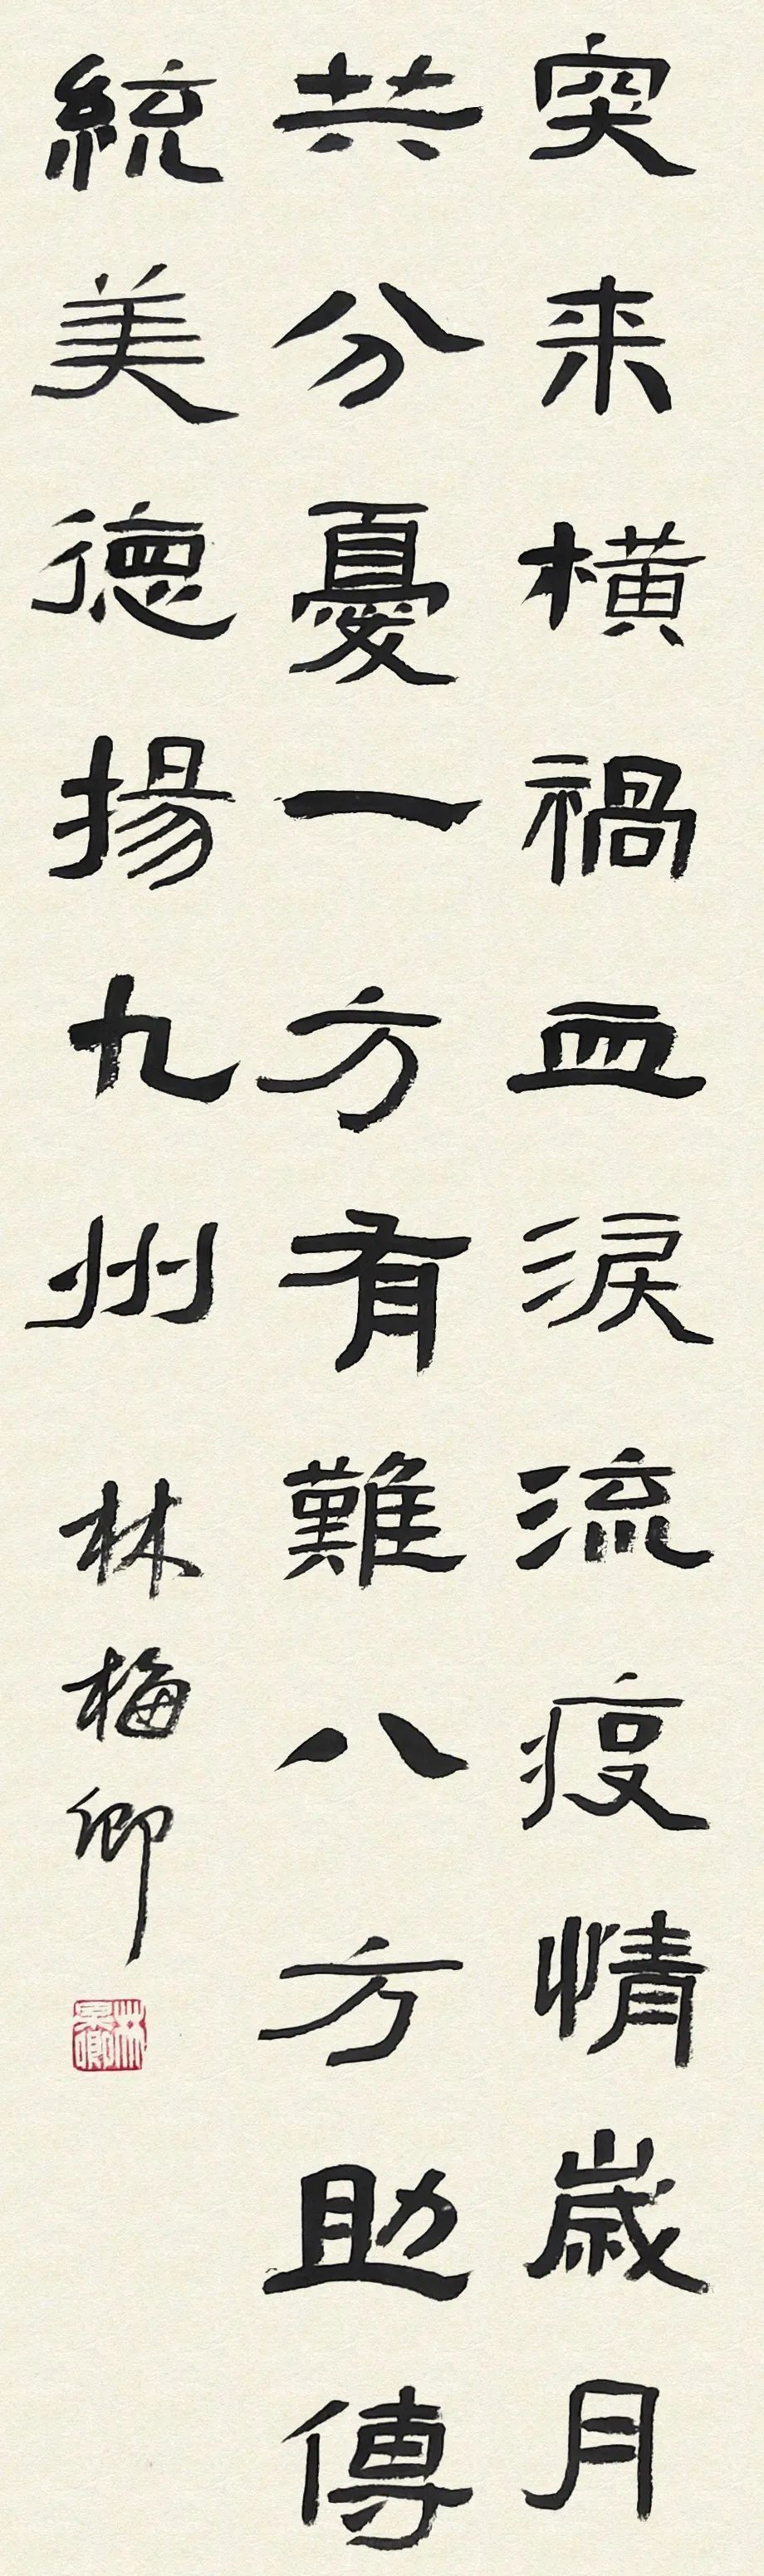 突来横禍血淚流疫情歳月
共分憂一方有難八方助傳
統美德揚九州
林梅卿